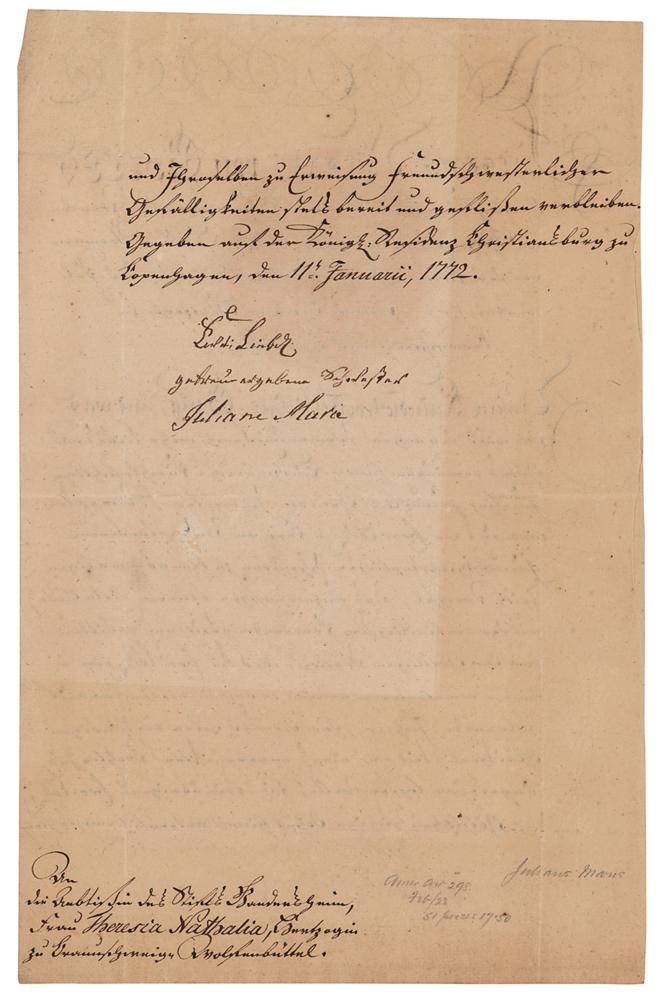 und Ihroselben zu Erweisung Freundschwesterlicher
Gefälligkeiten stets bereit und geflißen verbleiben.
Gegeben auf der Königl: Residenz Christiansburg zu
Copenhagen, den 11t. Januarii, 1772.
getreu ergebene Schwester
Juliane Marie
An
die Aebtißin des Stifts Gandersheim,
Frau Theresia Nathalia, Hertzogin
zu Braunschweig-Wolfenbüttel.